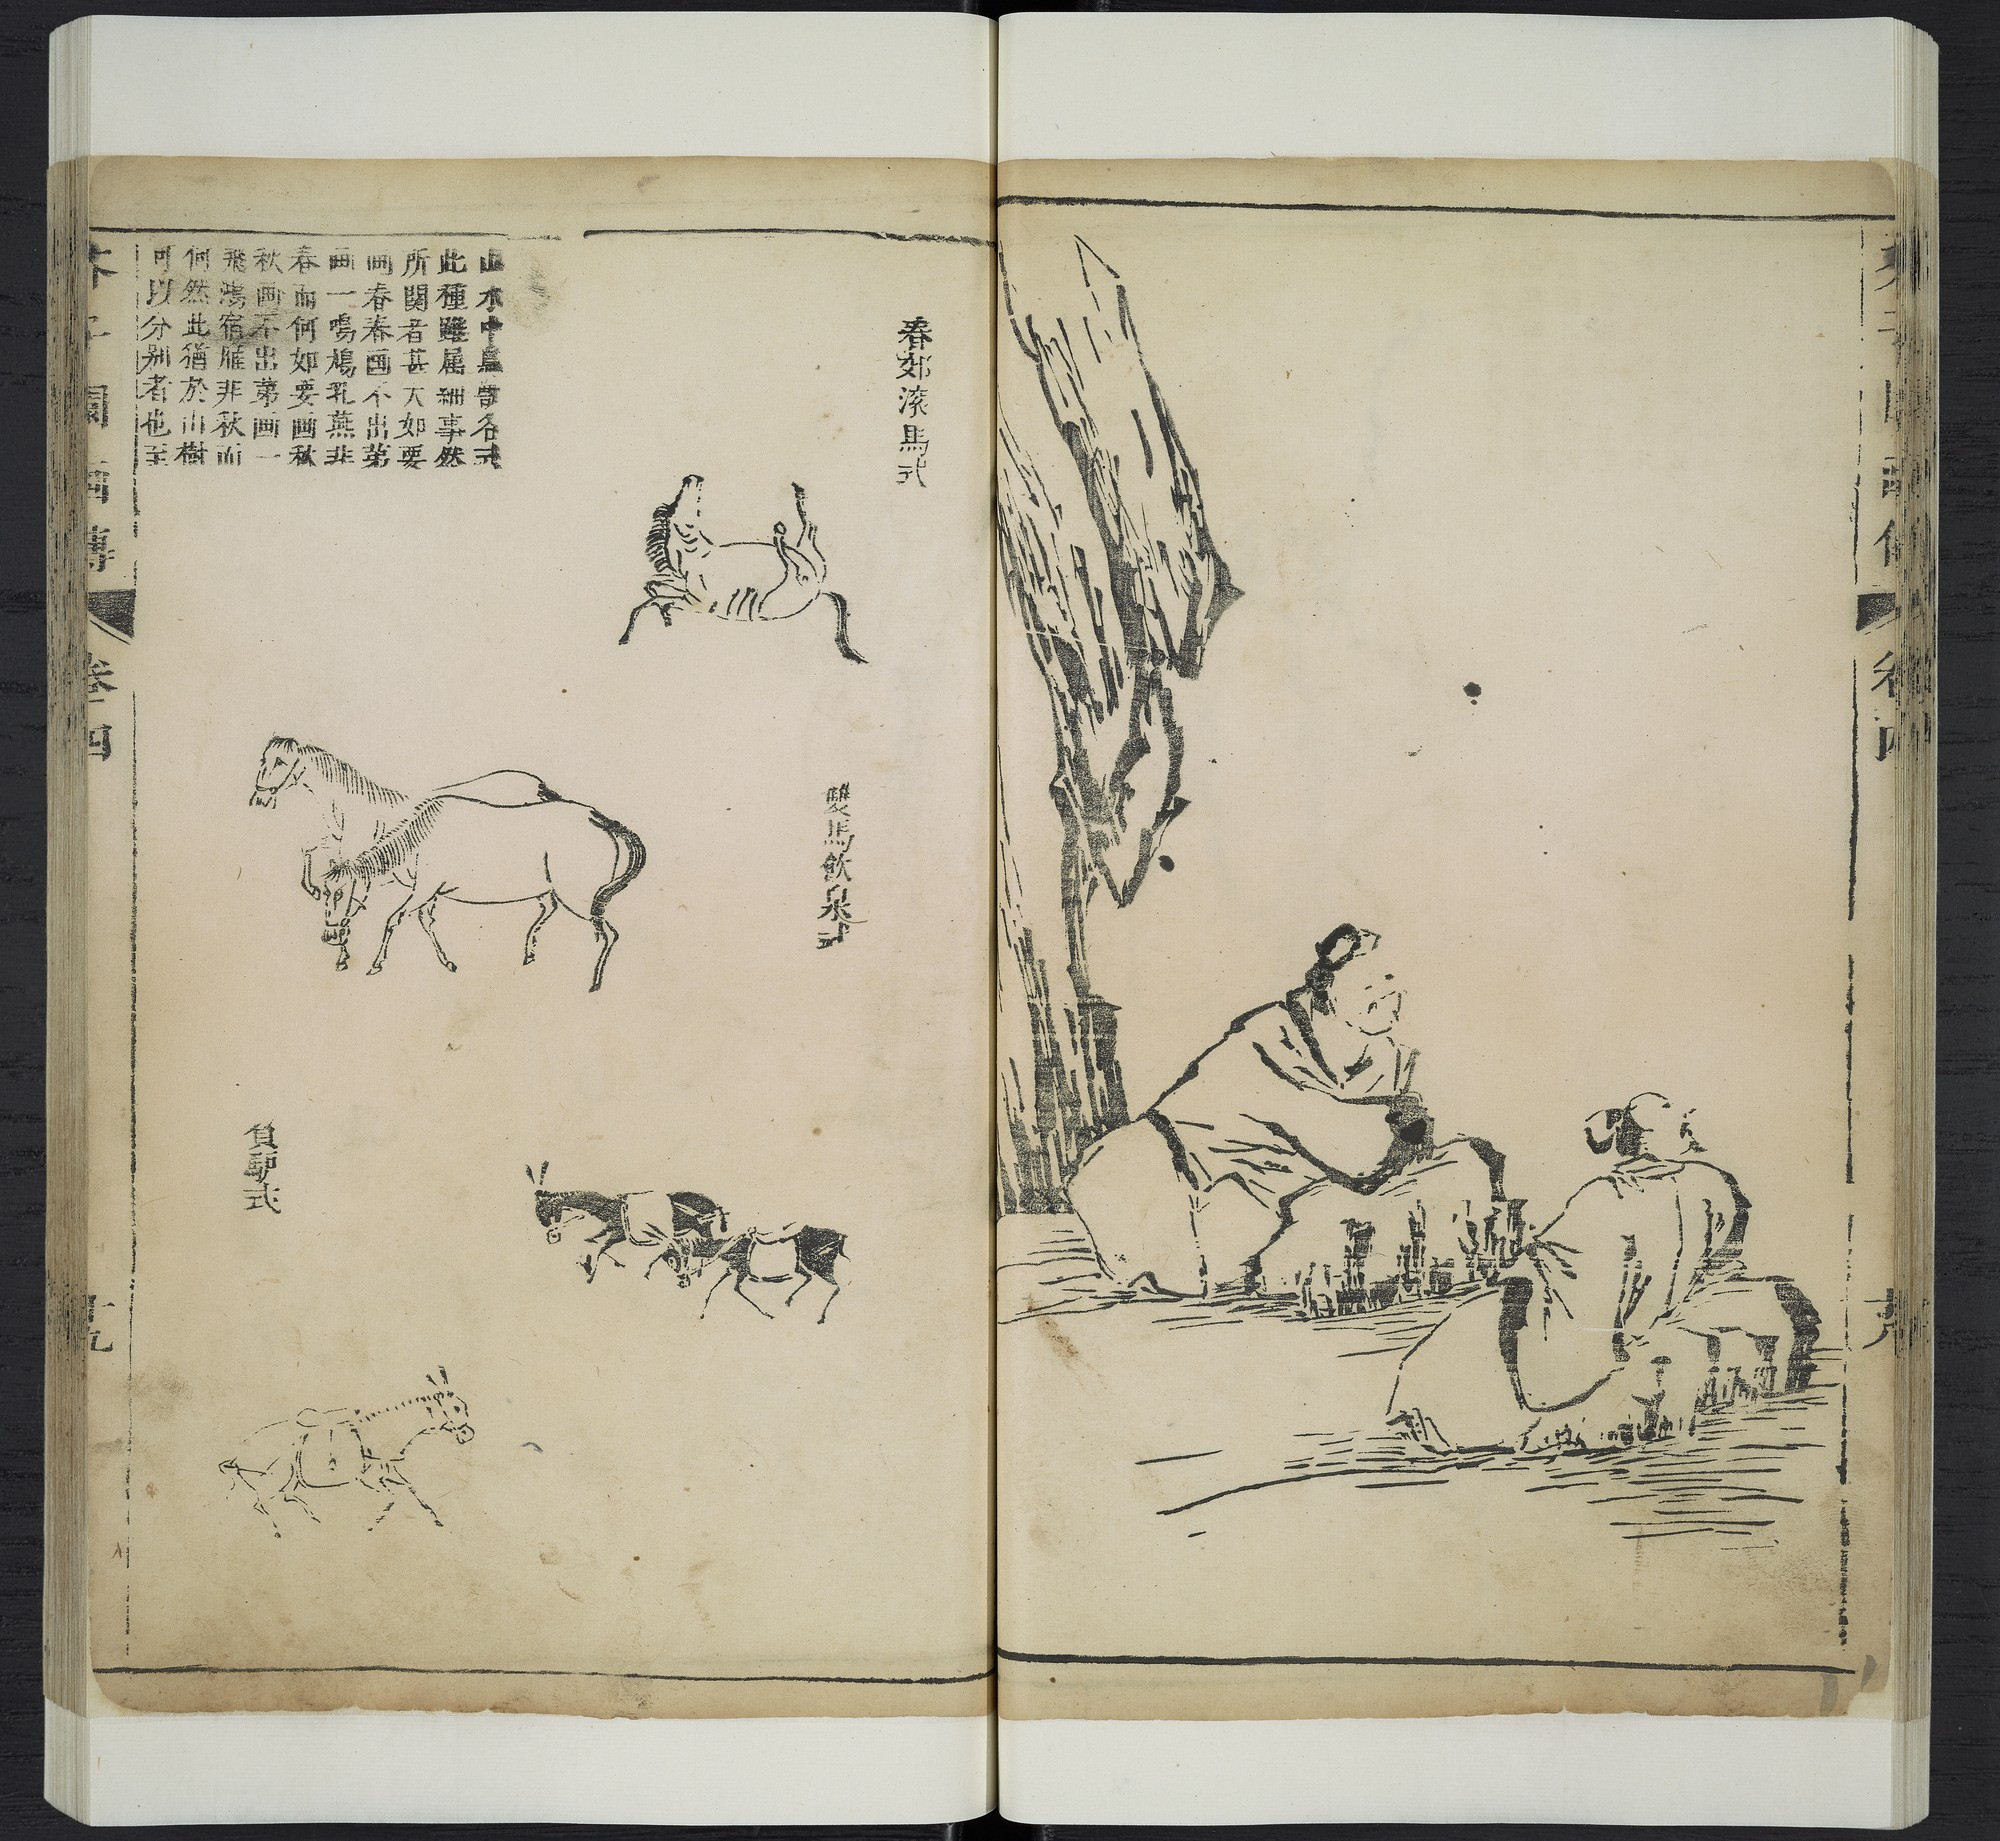 芥子園畫傳
卷四
春郊滾馬式
雙馬飲泉式
負驢式
山水中鳥獸各式
此種雖屬細事然
所関者甚大如要
画春春画不出第
画一鳴鳩乳燕非
春而何如要画秋
秋画不出第画一
飛鴻宿雁非秋而
何然此猶於山樹
可以分别者也至
芥子園画傳
卷四
十九